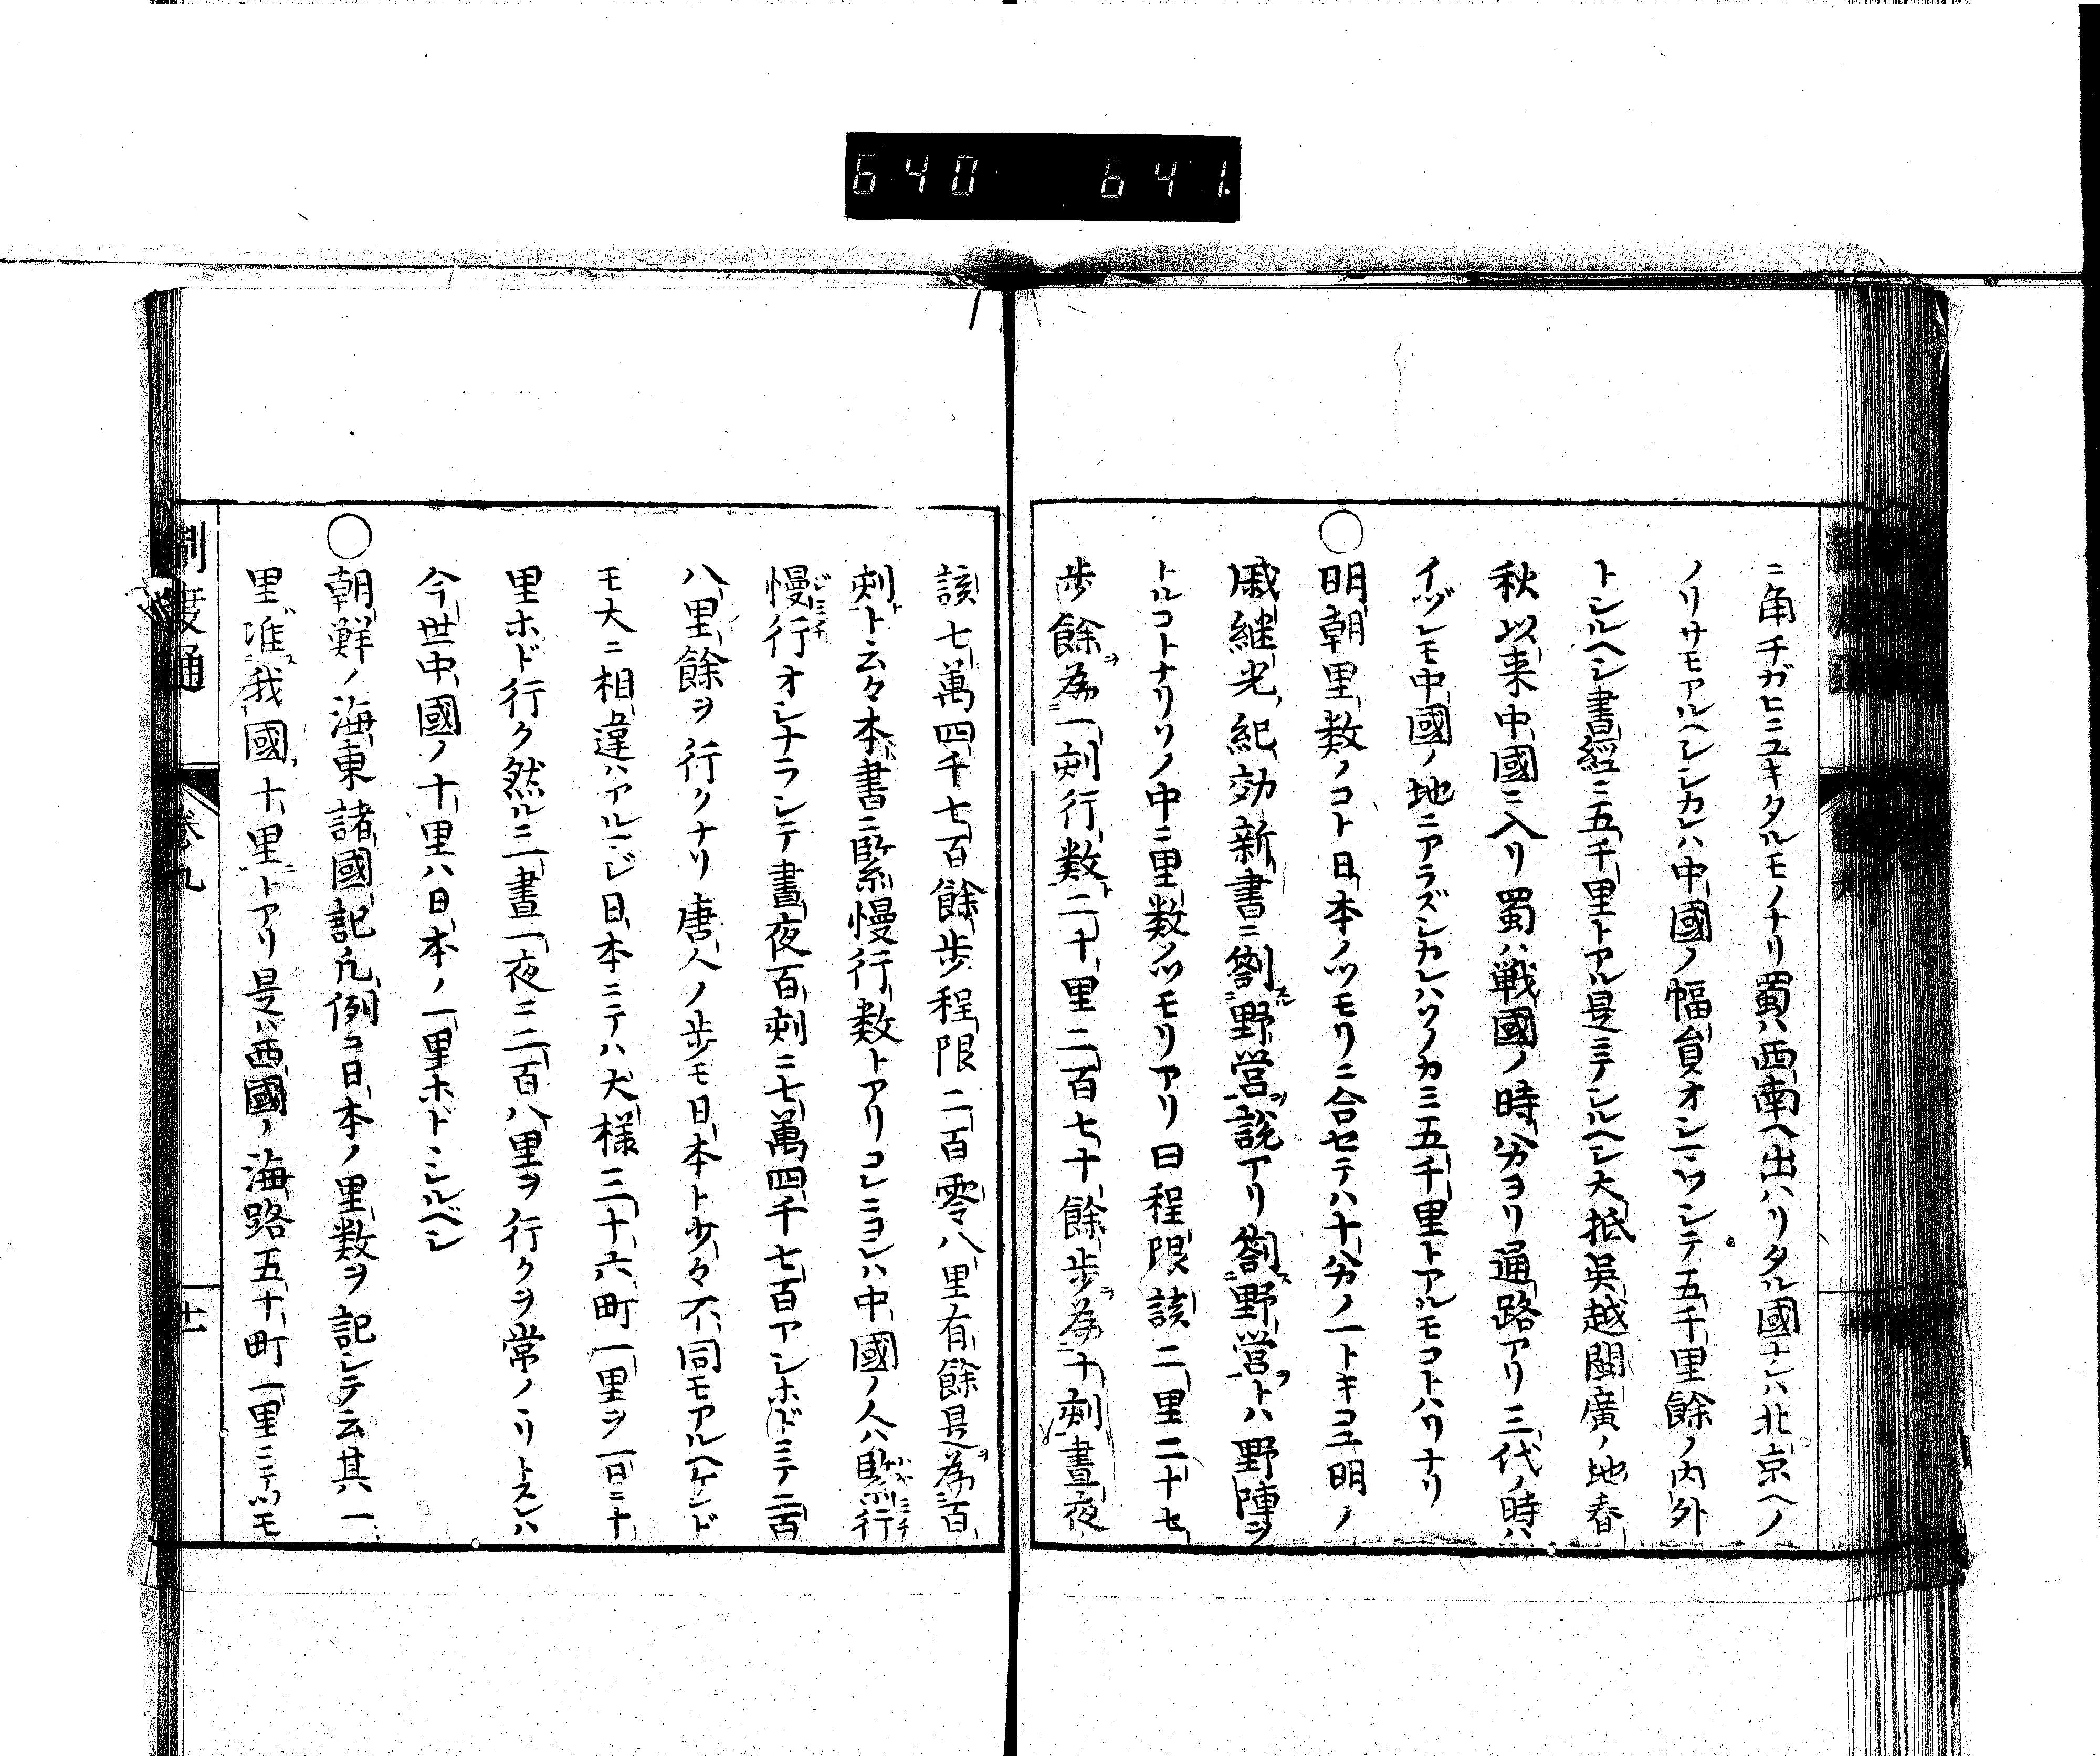 640 641
ニ角チガヒニユキタルモノナリ蜀ハ西南ヘ出ハリタル國ナレハ北京ヘノ
ノリサモアルヘシシカレハ中國ノ幅員オシマワシテ五千里餘ノ内外
トシルヘシ書經ニ五千里トアル是ニテシルヘシ大抵吳越閩廣ノ地春
秋以来中國ニ入リ蜀ハ戦國ノ時分ヨリ通路アリ三代ノ時ハ
イヅレモ中國ノ地ニアラズシカレハワノカミ五千里トアルモコトハリナリ
○明朝里数ノコト日本ノツモリニ合セテハ十分ノ一トキコユ明ノ
戚継光紀効新書ニ劄野営說アリ劄野営トハ野陣ヲ
トルコトナリソノ中ニ里数ノツモリアリ曰程限該二里二十七
歩餘為一刻行数二十里二百七十餘歩為十刻晝夜
該七萬四千七百餘歩程限二百零八里有餘是為百
刻ト云々本書ニ緊慢行数トアリコレニヨレハ中國ノ人ハ緊行
慢行オシナラシテ晝夜百刻ニ七萬四千七百アシホドニテ二百
八里餘ヲ行クナリ唐人ノ歩モ日本ト少々不同モアルヘケレド
モ大ニ相違ハアルマジ日本ニテハ大様三十六町一里ヲ一日ニ十
里ホド行ク然ルニ一晝一夜ニ二百八里ヲ行クヲ常ノリトスレハ
今世中國ノ十里ハ日本ノ一里ホドトシルベシ
○朝鮮ノ海東諸國記凡例ニ日本ノ里数ヲ記シテ云其一
里准我國十里トアリ是ハ西國ノ海路五十町一里ニテツモ
制度通 卷九 十一